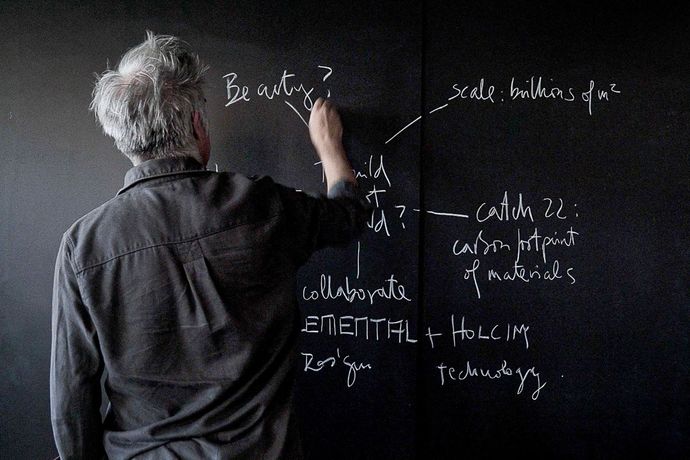 Beauty?
scale: billions of m²
catch 22:
carbon footprint
of materials
collaborate
EMENTAL + HOLCIM
Design technology.